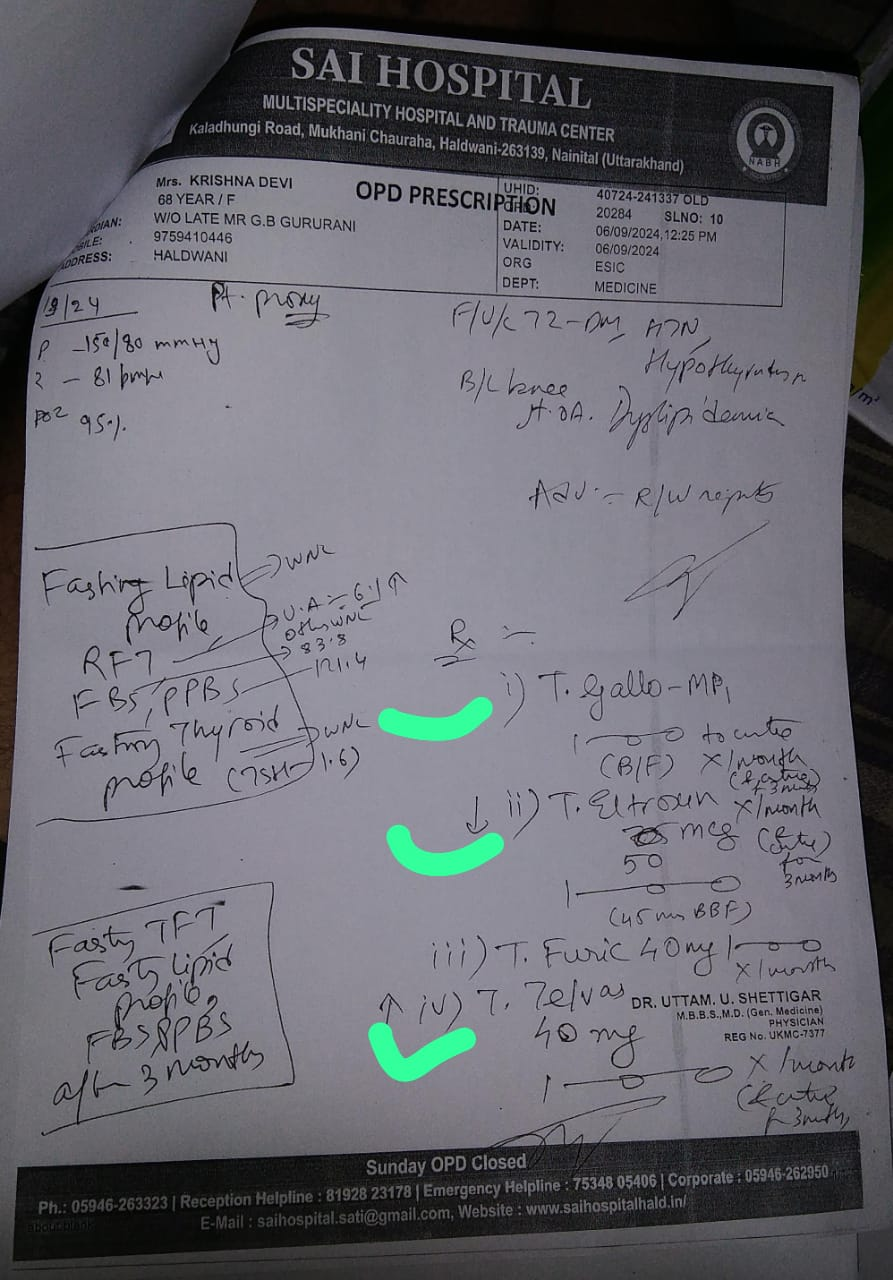 SAI HOSPITAL
MULTISPECIALITY HOSPITAL AND TRAUMA CENTER
Kaladhungi Road, Mukhani Chauraha, Haldwani-263139, Nainital (Uttarakhand)
NABH
OPD PRESCRIPTION
Mrs. KRISHNA DEVI
68 YEAR / F
W/O LATE MR G.B GURURANI
9759410446
ADDRESS: HALDWANI
UHID: 40724-241337 OLD
20284 SLNO: 10
DATE: 06/09/2024, 12:25 PM
VALIDITY: 06/09/2024
ORG ESIC
DEPT: MEDICINE
/9/24
Pt. proxy
P - 150/80 mmHg
- 81 bpm
PO2 95%
F/U/C T2-DM, HTN,
Hypothyroidism
B/L knee
OA. Dyslipidemia
Adv:- R/W reports
Fasting Lipid profile → WNL
RFT → U.A - 6.1 ↑
Others WNL
FBS, PPBS → 83.8
121.4
Fasting Thyroid profile → WNL
(TSH - 1.6)
Rx :-
i) T. Gallo-MP1
1 — o — o to cntie
(B/F) X 1/month
(& cntie)
f 3 mnths
↓ ii) T. Eltroxin X 1/month
mcg (& cntie)
50 for
3 months
1 — o — o
(45 mns BBF)
iii) T. Furic 40 mg 1 — o — o
X 1/month
↑ iv) T. Telvas
40 mg
1 — o — o X 1/month
(& cntie
f 3 mnths
DR. UTTAM. U. SHETTIGAR
M.B.B.S.,M.D. (Gen. Medicine)
PHYSICIAN
REG No. UKMC-7377
Fasting TFT
Fasting Lipid
profile,
FBS, PPBS
after 3 months
Sunday OPD Closed
Ph.: 05946-263323 | Reception Helpline : 81928 23178 | Emergency Helpline : 75348 05406 | Corporate : 05946-262950
E-Mail : saihospital.sati@gmail.com, Website : www.saihospitalhald.in/
about:blank